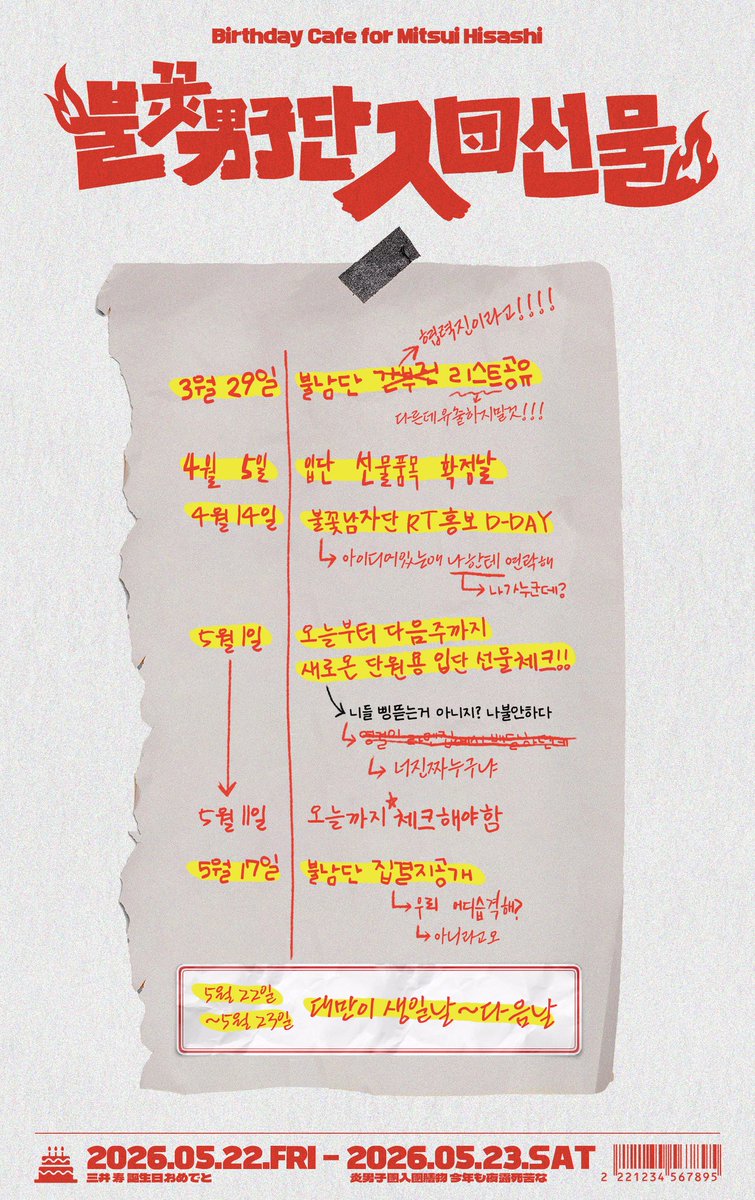 Birthday Cafe for Mitsui Hisashi
불꽃男子단 入団선물
협력진이라고!!!!
3월 29일 불남단 간부전 리스트공유
다른데유출하지말것!!!
4월 5일 입단 선물품목 확정날
4월 14일 불꽃남자단 RT홍보 D-DAY
아이디어있는애 나한테 연락해
나가누군데?
5월 1일 오늘부터 다음주까지
새로온 단원용 입단 선물체크!!
니들 삥뜯는거 아니지? 나불안하다
너진짜누구냐
5월 11일 오늘까지*체크해야함
5월 17일 불남단 집결지공개
우리 어디습격해?
아니라고오
5월 22일
~5월 23일 대만이 생일날~다음날
2026.05.22.FRI - 2026.05.23.SAT
三井 寿 誕生日おめでと
炎男子團入団膳物 今年も夜露死苦な
2 221234 567895